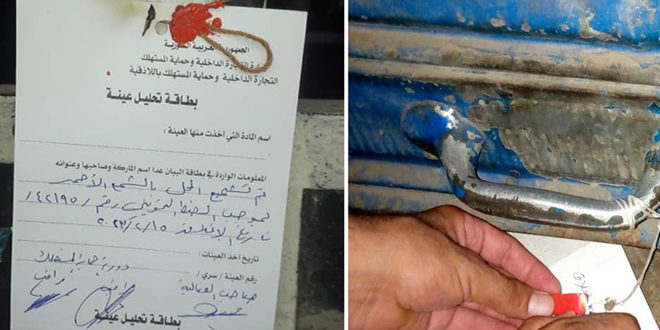 الجمهورية العربية السورية
وزارة التجارة الداخلية وحماية المستهلك
التجارة الداخلية وحماية المستهلك باللاذقية
بطاقة تحليل عينة
اسم المادة التي أخذت منها العينة :
المعلومات الواردة في بطاقة البيان عدا اسم الماركة وصاحبها وعنوانه
تم تشميع المحل بالشمع الأحمر
بموجب الضبط التمويني رقم /٤٢١٩٥/
تاريخ الإغلاق ٢٠٢٣/٢/١٥
تاريخ أخذ العينات :
دورية حماية المستهلك
رقم العينة / سري /
صاحب الفعالية
بطاقة تحليل عينة